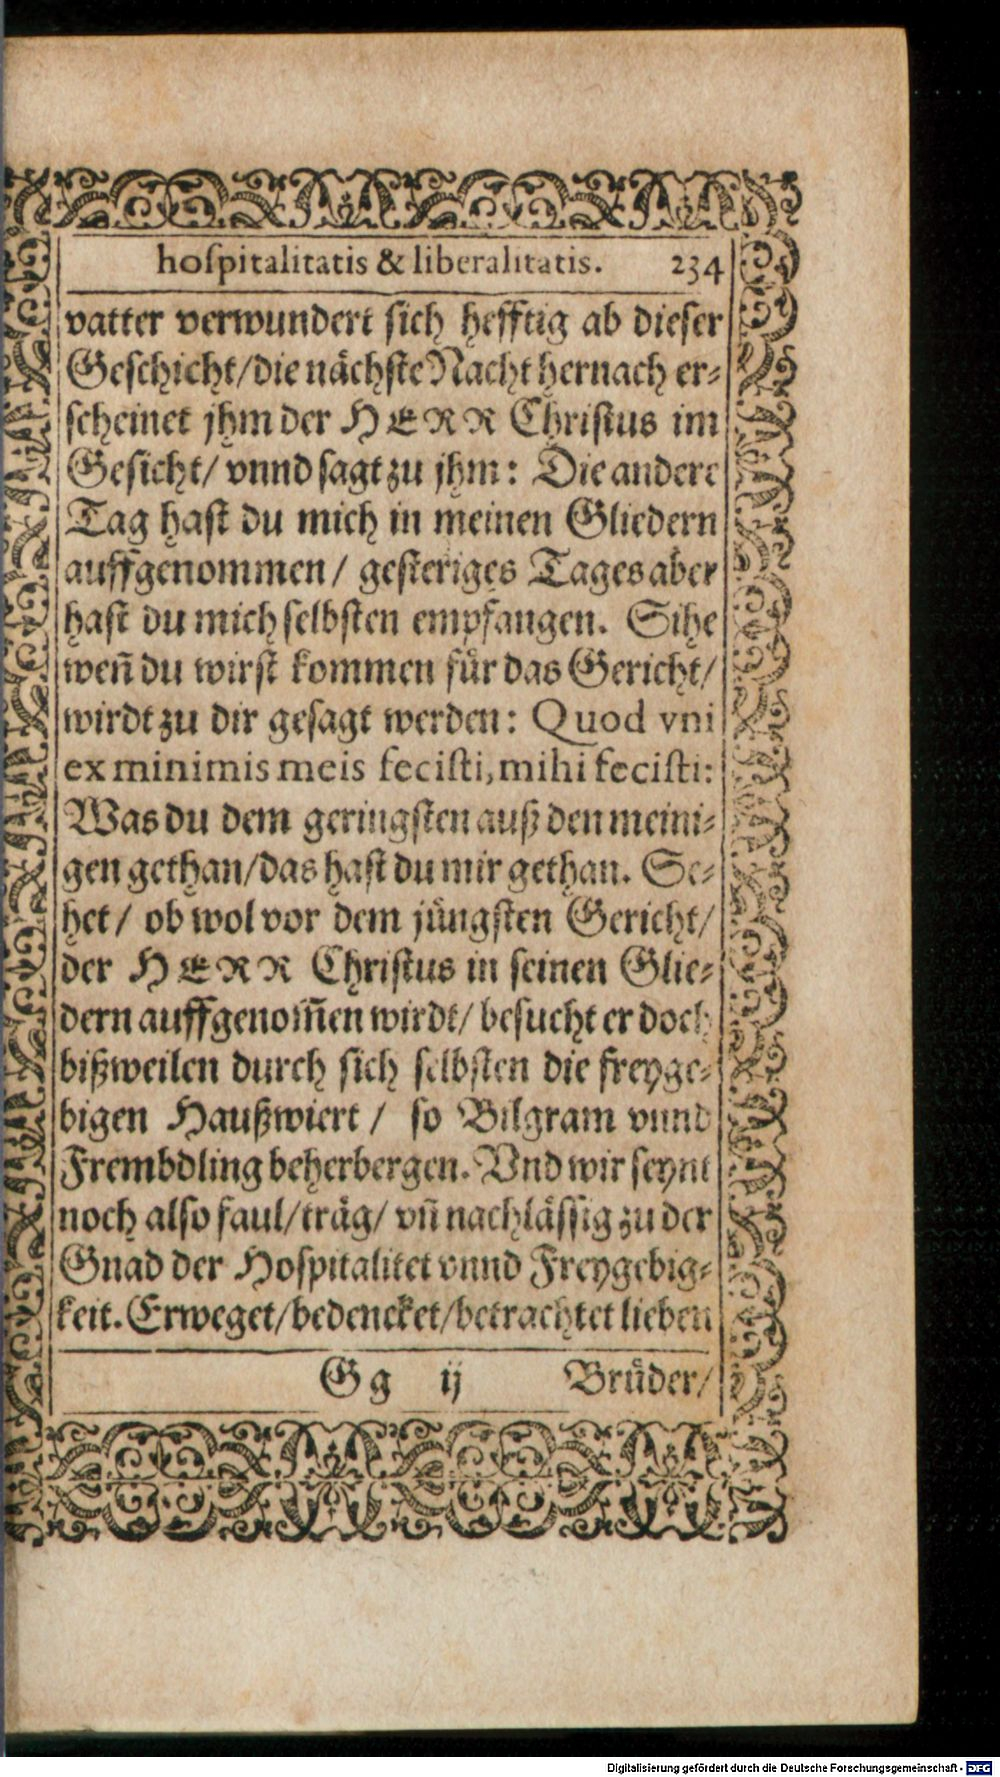 hospitalitatis & liberalitatis. 234
vatter verwundert sich hefftig ab dieser
Geschicht/die nächste Nacht hernach er-
scheinet jhm der HERR Christus im
Gesicht/ vnnd sagt zu jhm: Die andere
Tag hast du mich in meinen Gliedern
auffgenommen/ gesteriges Tages aber
hast du mich selbsten empfangen. Sihe
weñ du wirst kommen für das Gericht/
wirdt zu dir gesagt werden: Quod vni
ex minimis meis fecisti, mihi fecisti:
Was du dem geringsten auß den meini-
gen gethan/das hast du mir gethan. Se-
het/ ob wol vor dem jüngsten Gericht/
der HERR Christus in seinen Glie-
dern auffgenom̃en wirdt/ besucht er doch
bißweilen durch sich selbsten die freyge-
bigen Haußwiert/ so Bilgram vnnd
Frembdling beherbergen. Vnd wir seynt
noch also faul/träg/ vñ nachlässig zu der
Gnad der Hospitalitet vnnd Freygebig-
keit. Erweget/bedencket/betrachtet lieben
Gg ij Brüder/
Digitalisierung gefördert durch die Deutsche Forschungsgemeinschaft - DFG